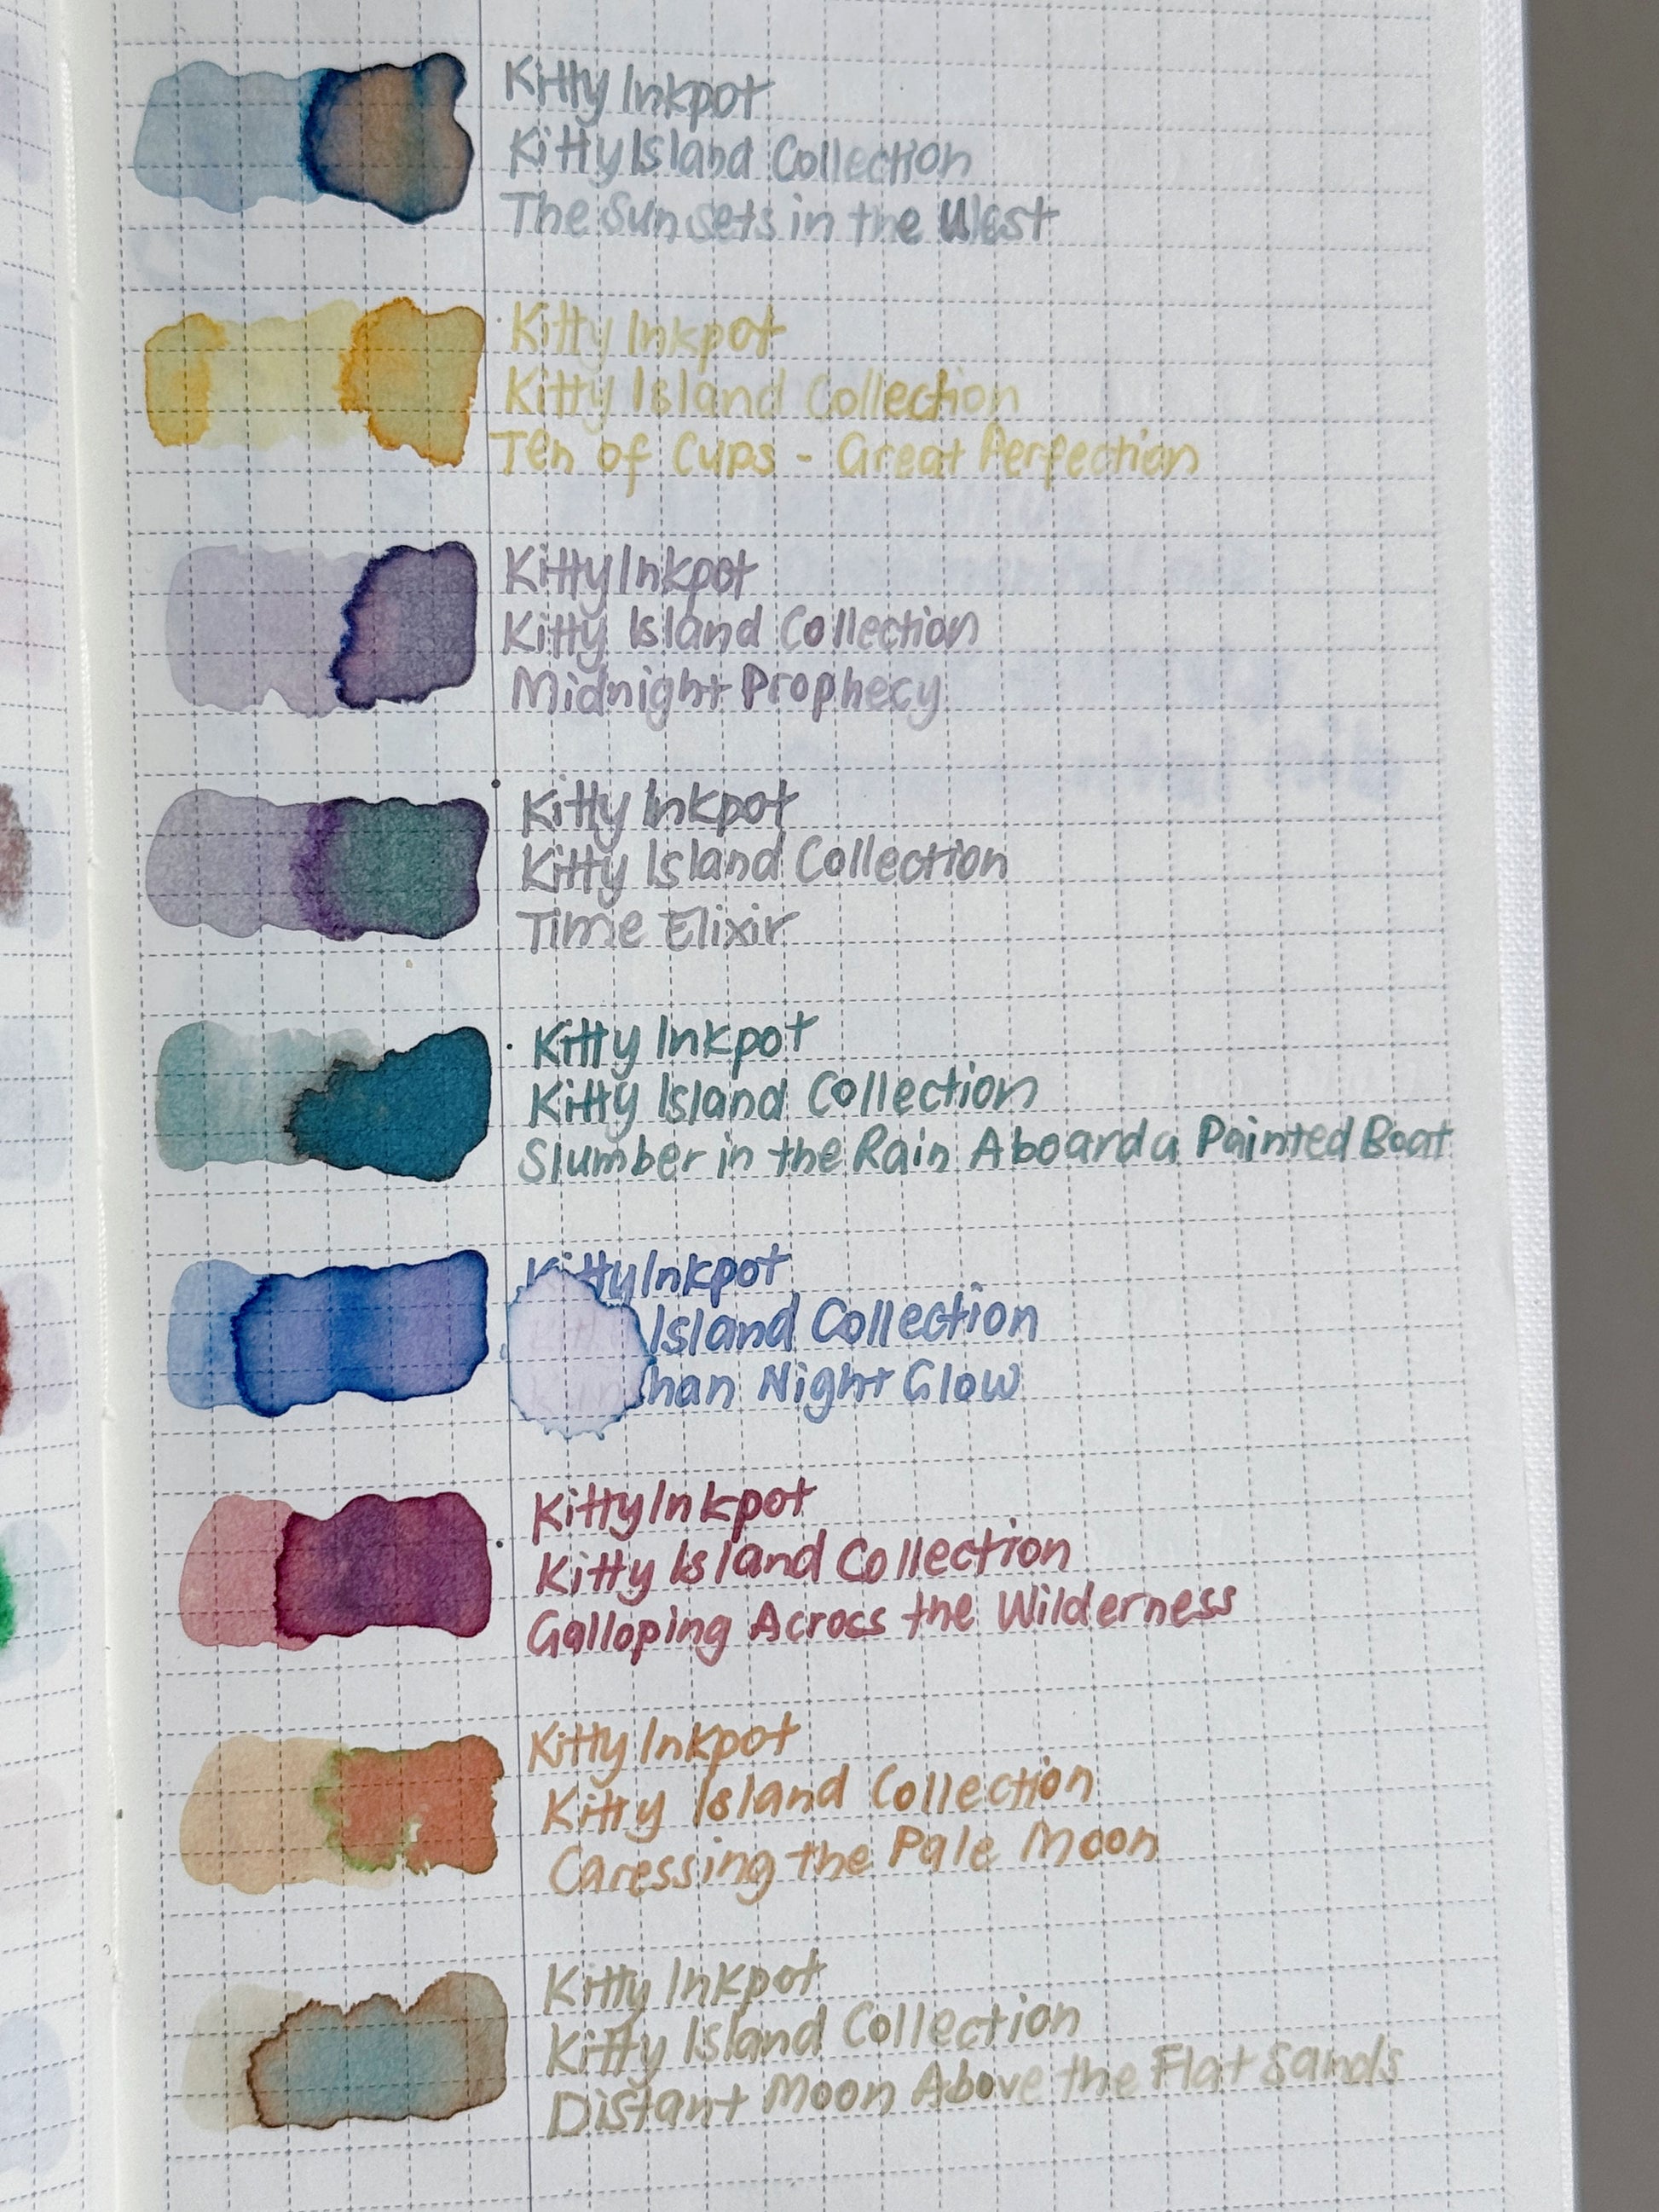 Kitty Inkpot
Kitty Island Collection
The Sun Sets in the West
Kitty Inkpot
Kitty Island Collection
Ten of Cups - Great Perfection
Kitty Inkpot
Kitty Island Collection
Midnight Prophecy
Kitty Inkpot
Kitty Island Collection
Time Elixir
Kitty Inkpot
Kitty Island Collection
Slumber in the Rain Aboard a Painted Boat
Kitty Inkpot
Kitty Island Collection
Night Glow
Kitty Inkpot
Kitty Island Collection
Galloping Across the Wilderness
Kitty Inkpot
Kitty Island Collection
Caressing the Pale Moon
Kitty Inkpot
Kitty Island Collection
Distant Moon Above the Flat Sands